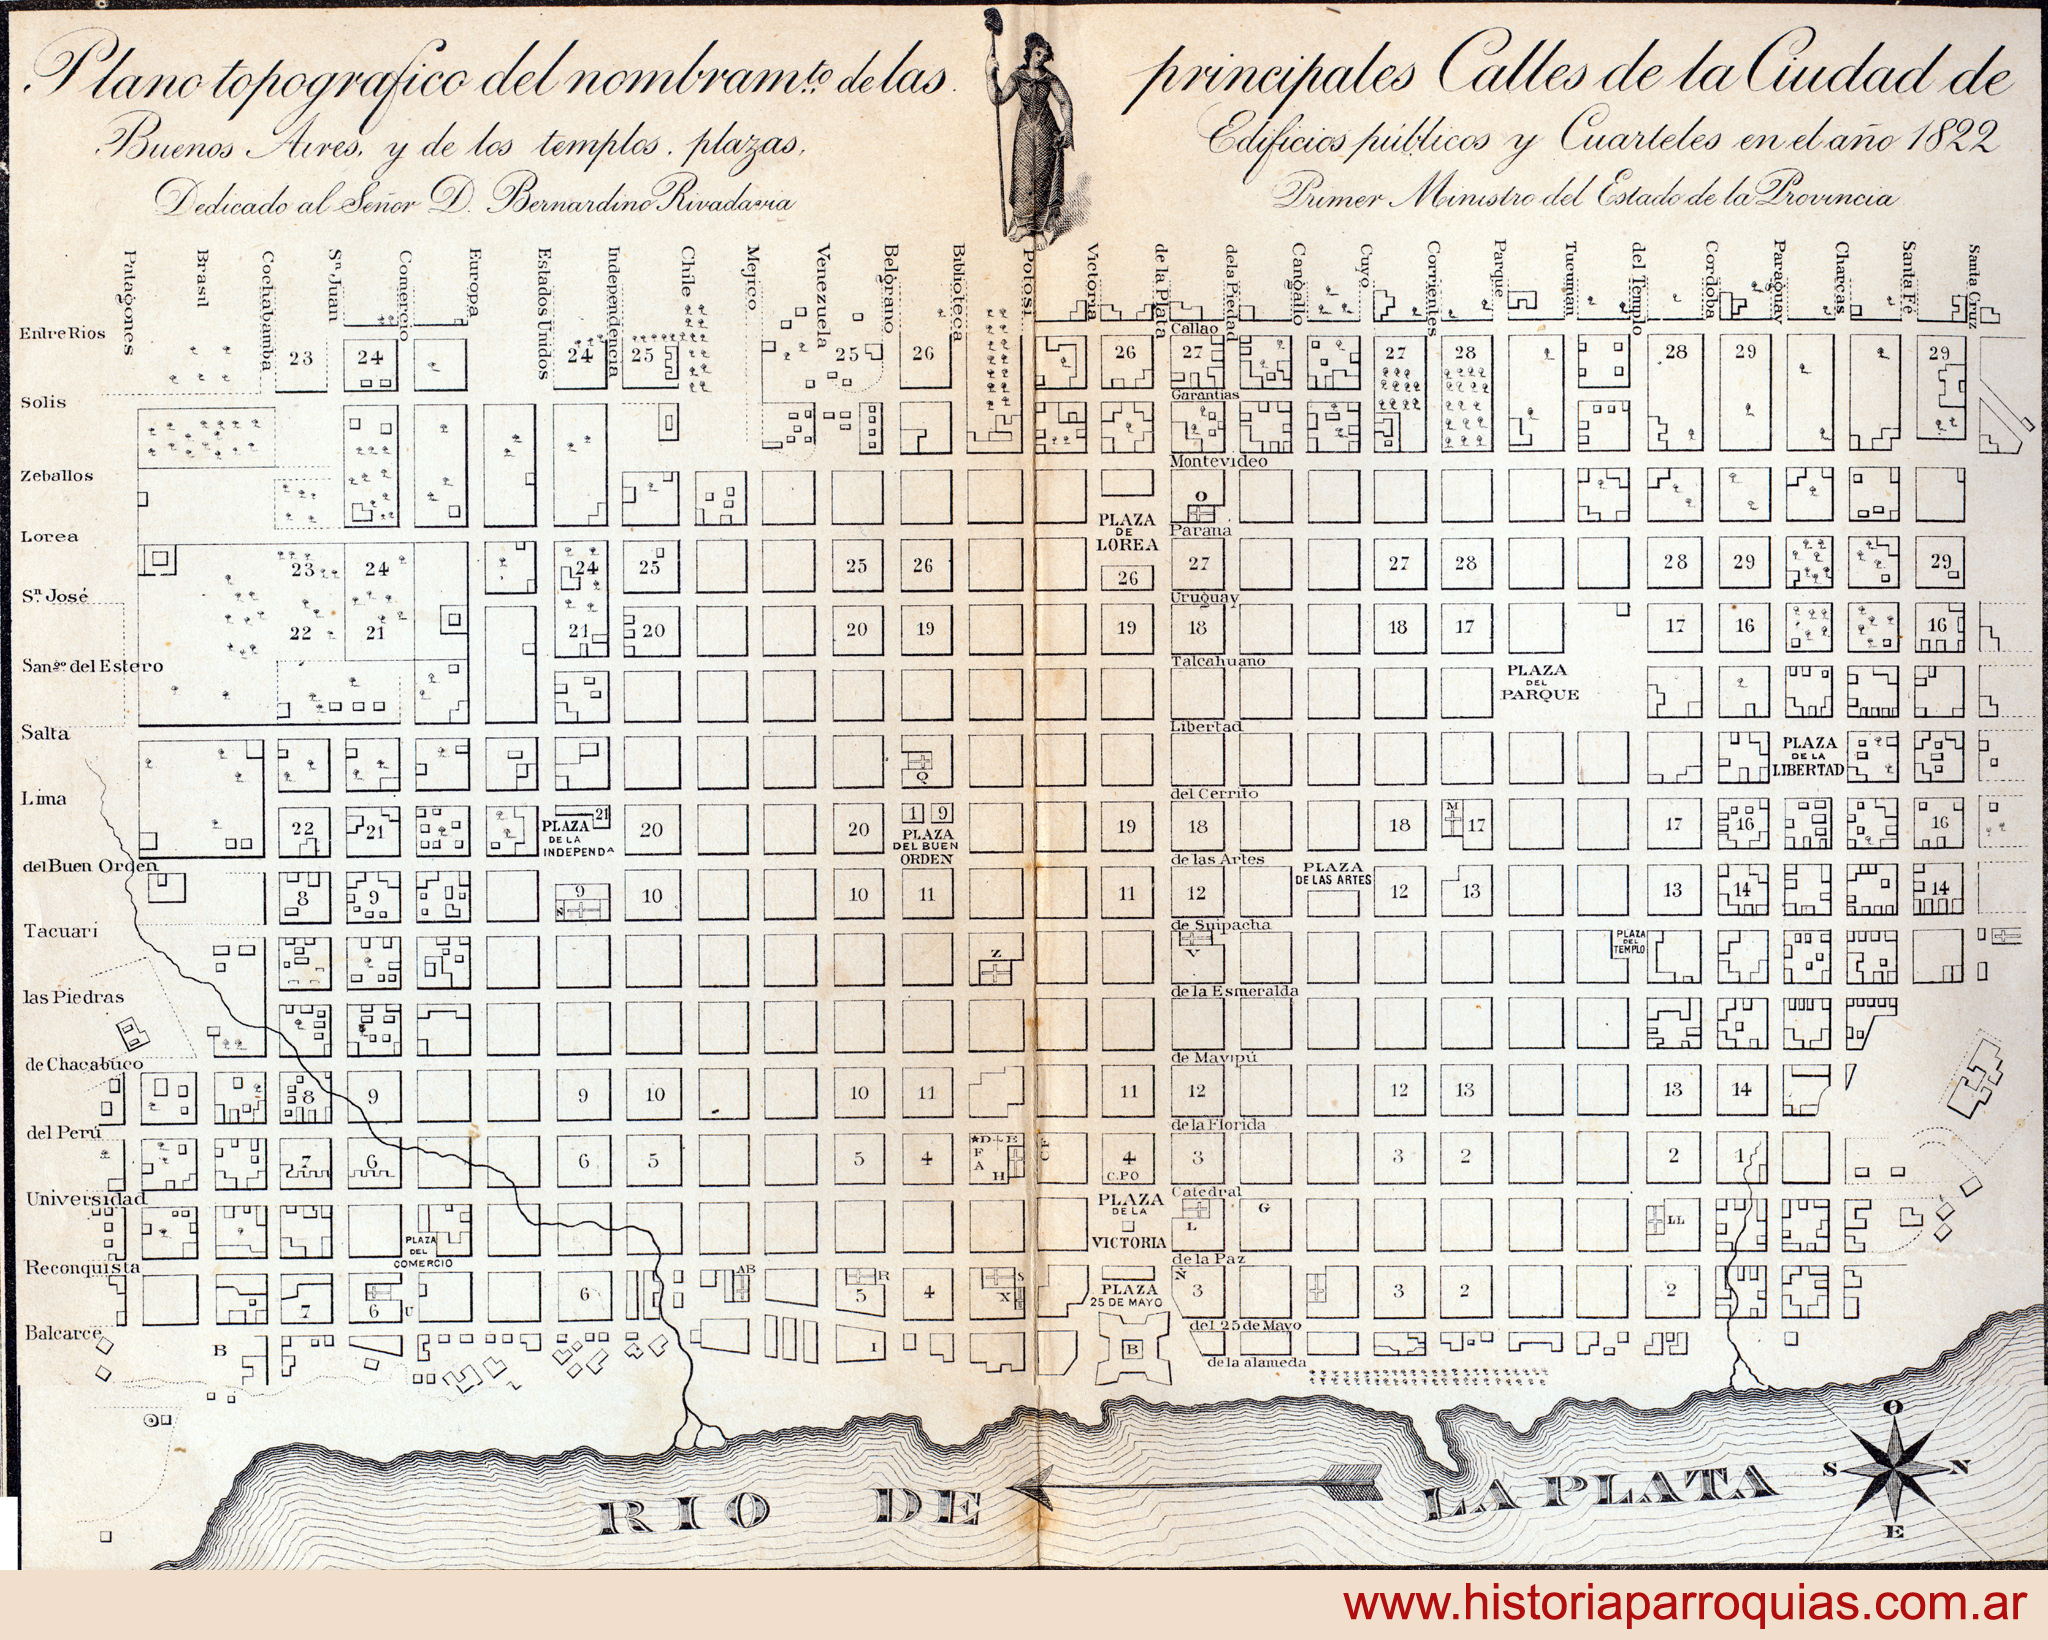 Plano topografico del nombram.to de las principales Calles de la Ciudad de
Buenos Aires, y de los templos, plazas, Edificios públicos y Cuarteles en el año 1822
Dedicado al Señor D. Bernardino Rivadavia Primer Ministro del Estado de la Provincia
Patagones
Brasil
Cochabamba
Sn Juan
Comercio
Europa
Estados Unidos
Independencia
Chile
Mejico
Venezuela
Belgrano
Biblioteca
Potosi
Victoria
de la Plata
de la Piedad
Cangallo
Cuyo
Corrientes
Parque
Tucuman
del Templo
Cordoba
Paraguay
Charcas
Santa Fé
Santa Cruz
Entre Rios
Callao
23 24 24 25 25 26 26 27 27 28 28 29 29
Solis
Garantias
Zeballos
Montevideo
O
PLAZA
DE
LOREA
Lorea
Parana
23 24 24 25 25 26 26 27 27 28 28 29 29
Sn. José
Uruguay
22 21 21 20 20 19 19 18 18 17 17 16 16
San.go del Estero
Talcahuano
PLAZA
DEL
PARQUE
Salta
Libertad
Q
PLAZA
DE LA
LIBERTAD
Lima
del Cerrito
22 21 21 20 20 1 9 19 18 18 M 17 17 16 16
PLAZA
DE LA
INDEPENDA
PLAZA
DEL BUEN
ORDEN
del Buen Orden
de las Artes
PLAZA
DE LAS ARTES
8 9 9 N 10 10 11 11 12 12 13 13 14 14
Tacuari
de Suipacha
Z V
PLAZA
DEL
TEMPLO
las Piedras
de la Esmeralda
de Chacabuco
de Maypú
8 9 9 10 10 11 11 12 12 13 13 14
del Perú
de la Florida
D E
F
A
H
7 6 6 5 5 4 4 3 3 2 2 1
C.PO
Universidad
Catedral
PLAZA
DE LA
VICTORIA
L G LL
PLAZA
DEL
COMERCIO
Reconquista
de la Paz
AB R S X Ñ
7 6 U 6 5 4 3 3 2 2
PLAZA
25 DE MAYO
Balcarce
del 25 de Mayo
B I B
de la alameda
RIO DE LA PLATA
O
S N
E
www.historiaparroquias.com.ar